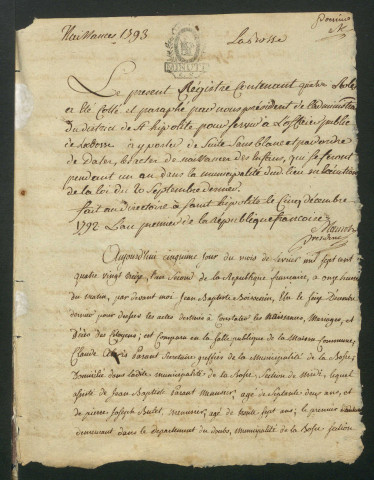 Naissances 1793
Labosse
Le present Régistre Contenant quatre
et été Cotté et paraphé par nous president de l'administration
Du district de St hipolite pour servir à L'officier public
de Labosse à y porter de Suite Sans blanc et par ordre
de Dates, les actes de naissance des Enfans, qui se feront
pendant un an dans la municipalité dud. lieu en Exécution
de la loi du 20 Septembre dernier.
fait au directoire à Saint hipolite le Cinq décembre
1792 L'an premier de la république francoise
president
Aujourd'hui cinquieme jour du mois de fevrier mil sept cent
quatre vingt treize, l'an second de la Republique francoise, à onze heures
du matin, par devant moi Jean Baptiste Boisvesin, élu le cinq Décembre
dernier pour dresser les actes destinés à Constater les Naissances, Marriages, et
Décès des Citoyens; est Comparu en la salle publique de la Maison Commune,
Claude parant Secretaire greffier de la Municipalité de la Bosse,
Domicilié dans ladite municipalité de la Bosse, Section de lequel
assisté de Jean Baptiste parant Manouvr: agé de Septante deux ans, et
de pierre Joseph Menuisier, agé de trente sept ans; le premier
demeurant dans le departement du doubs, municipalité de la Bosse section